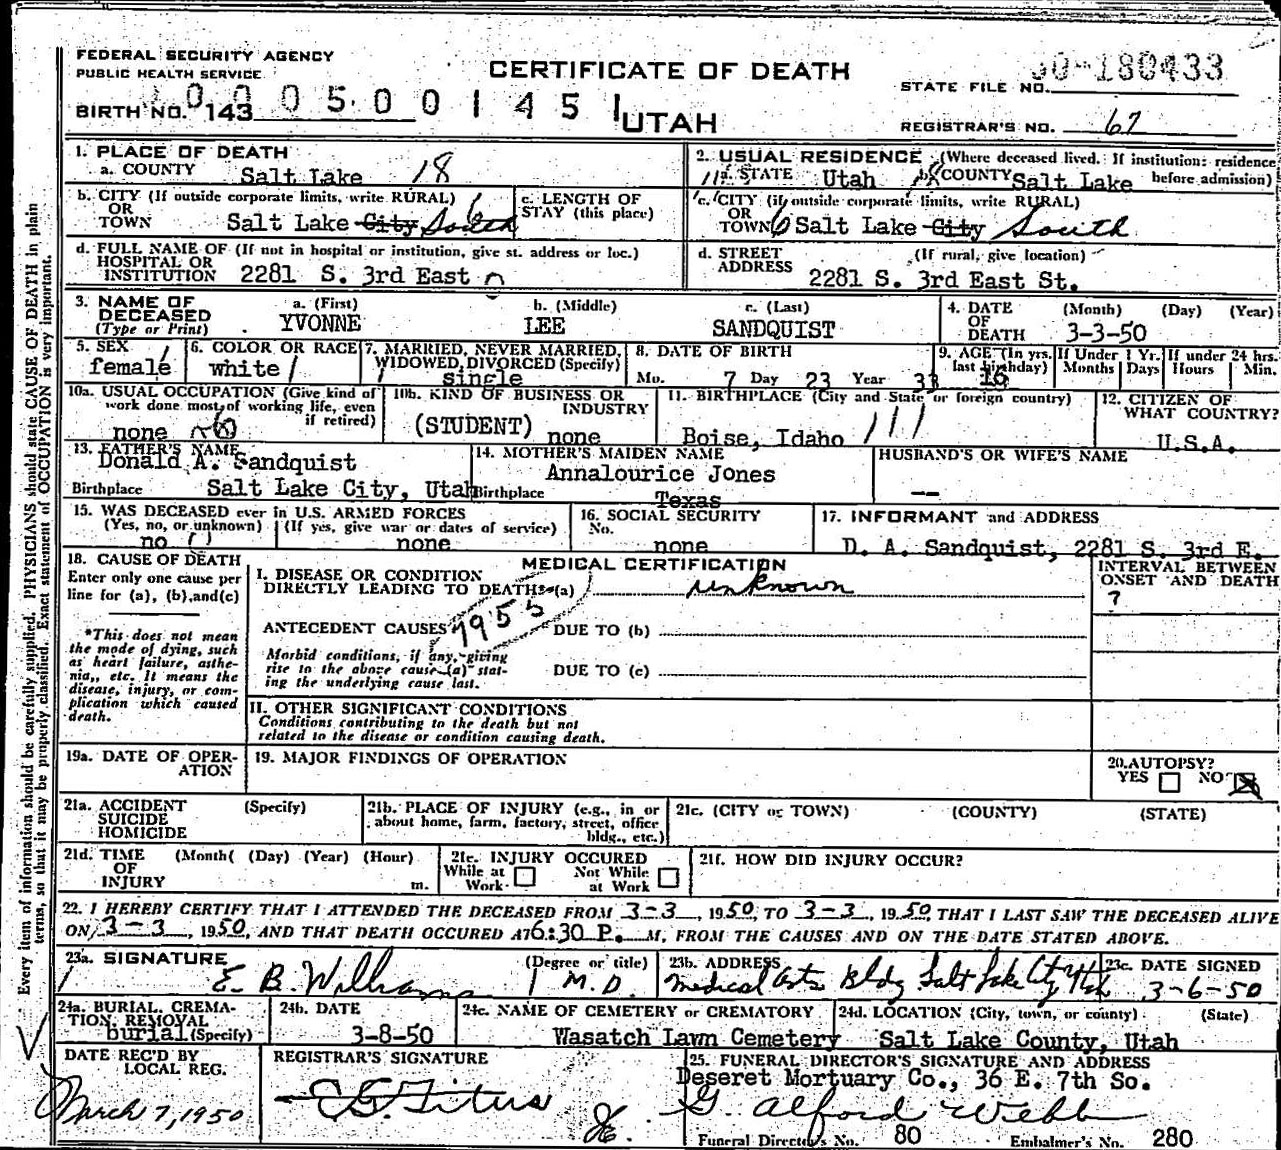 FEDERAL SECURITY AGENCY
PUBLIC HEALTH SERVICE
CERTIFICATE OF DEATH
STATE FILE NO. 50-180433
BIRTH NO. 143 0005001451
UTAH
REGISTRAR'S NO. 67
1. PLACE OF DEATH
a. COUNTY Salt Lake 18
2. USUAL RESIDENCE (Where deceased lived. If institution: residence before admission)
a. STATE Utah b. COUNTY Salt Lake
b. CITY (If outside corporate limits, write RURAL)
OR
TOWN Salt Lake City South
c. LENGTH OF
STAY (this place)
c. CITY (if outside corporate limits, write RURAL)
OR
TOWN Salt Lake City South
d. FULL NAME OF (If not in hospital or institution, give st. address or loc.)
HOSPITAL OR
INSTITUTION 2281 S. 3rd East
d. STREET
ADDRESS (If rural, give location)
2281 S. 3rd East St.
3. NAME OF
DECEASED
(Type or Print)
a. (First) b. (Middle) c. (Last)
YVONNE LEE SANDQUIST
4. DATE
OF
DEATH
(Month) (Day) (Year)
3-3-50
5. SEX
female
6. COLOR OR RACE
white
7. MARRIED, NEVER MARRIED,
WIDOWED, DIVORCED (Specify)
single
8. DATE OF BIRTH
Mo. 7 Day 23 Year 33
9. AGE (In yrs.
last birthday)
16
If Under 1 Yr.
Months Days
If under 24 hrs.
Hours Min.
10a. USUAL OCCUPATION (Give kind of
work done most of working life, even
if retired)
none
10b. KIND OF BUSINESS OR
INDUSTRY
(STUDENT) none
11. BIRTHPLACE (City and State or foreign country)
Boise, Idaho 111
12. CITIZEN OF
WHAT COUNTRY?
U.S.A.
13. FATHER'S NAME
Donald A. Sandquist
Birthplace Salt Lake City, Utah
14. MOTHER'S MAIDEN NAME
Annalourice Jones
Birthplace Texas
HUSBAND'S OR WIFE'S NAME
--
15. WAS DECEASED ever in U.S. ARMED FORCES
(Yes, no, or unknown) (If yes, give war or dates of service)
no none
16. SOCIAL SECURITY
No.
none
17. INFORMANT and ADDRESS
D. A. Sandquist, 2281 S. 3rd E.
18. CAUSE OF DEATH
Enter only one cause per
line for (a), (b), and (c)
*This does not mean
the mode of dying, such
as heart failure, asthe-
nia,, etc. It means the
disease, injury, or com-
plication which caused
death.
MEDICAL CERTIFICATION
I. DISEASE OR CONDITION
DIRECTLY LEADING TO DEATH*(a) unknown
ANTECEDENT CAUSES 1955 DUE TO (b)
Morbid conditions, if any, giving
rise to the above cause (a) stat-
ing the underlying cause last.
DUE TO (c)
INTERVAL BETWEEN
ONSET AND DEATH
?
II. OTHER SIGNIFICANT CONDITIONS
Conditions contributing to the death but not
related to the disease or condition causing death.
19a. DATE OF OPER-
ATION
19. MAJOR FINDINGS OF OPERATION
20. AUTOPSY?
YES NO
21a. ACCIDENT
SUICIDE
HOMICIDE
(Specify)
21b. PLACE OF INJURY (e.g., in or
about home, farm, factory, street, office
bldg., etc.)
21c. (CITY or TOWN) (COUNTY) (STATE)
21d. TIME
OF
INJURY
(Month( (Day) (Year) (Hour)
m.
21e. INJURY OCCURED
While at
Work
Not While
at Work
21f. HOW DID INJURY OCCUR?
22. I HEREBY CERTIFY THAT I ATTENDED THE DECEASED FROM 3-3, 1950, TO 3-3, 1950, THAT I LAST SAW THE DECEASED ALIVE
ON 3-3, 1950, AND THAT DEATH OCCURED AT 6:30 P. M. FROM THE CAUSES AND ON THE DATE STATED ABOVE.
23a. SIGNATURE (Degree or title)
E. B. Williams M.D.
23b. ADDRESS
Medical Arts Bldg Salt Lake City Utah
23c. DATE SIGNED
3-6-50
24a. BURIAL, CREMA-
TION, REMOVAL
burial (Specify)
24b. DATE
3-8-50
24c. NAME OF CEMETERY or CREMATORY
Wasatch Lawn Cemetery
24d. LOCATION (City, town, or county) (State)
Salt Lake County, Utah
DATE REC'D BY
LOCAL REG.
March 7, 1950
REGISTRAR'S SIGNATURE
25. FUNERAL DIRECTOR'S SIGNATURE AND ADDRESS
Deseret Mortuary Co., 36 E. 7th So.
G. Alford Webb
Funeral Director's No. 80 Embalmer's No. 280
Every item of information should be carefully supplied. PHYSICIANS should state CAUSE OF DEATH in plain
terms, so that it may be properly classified. Exact statement of OCCUPATION is very important.